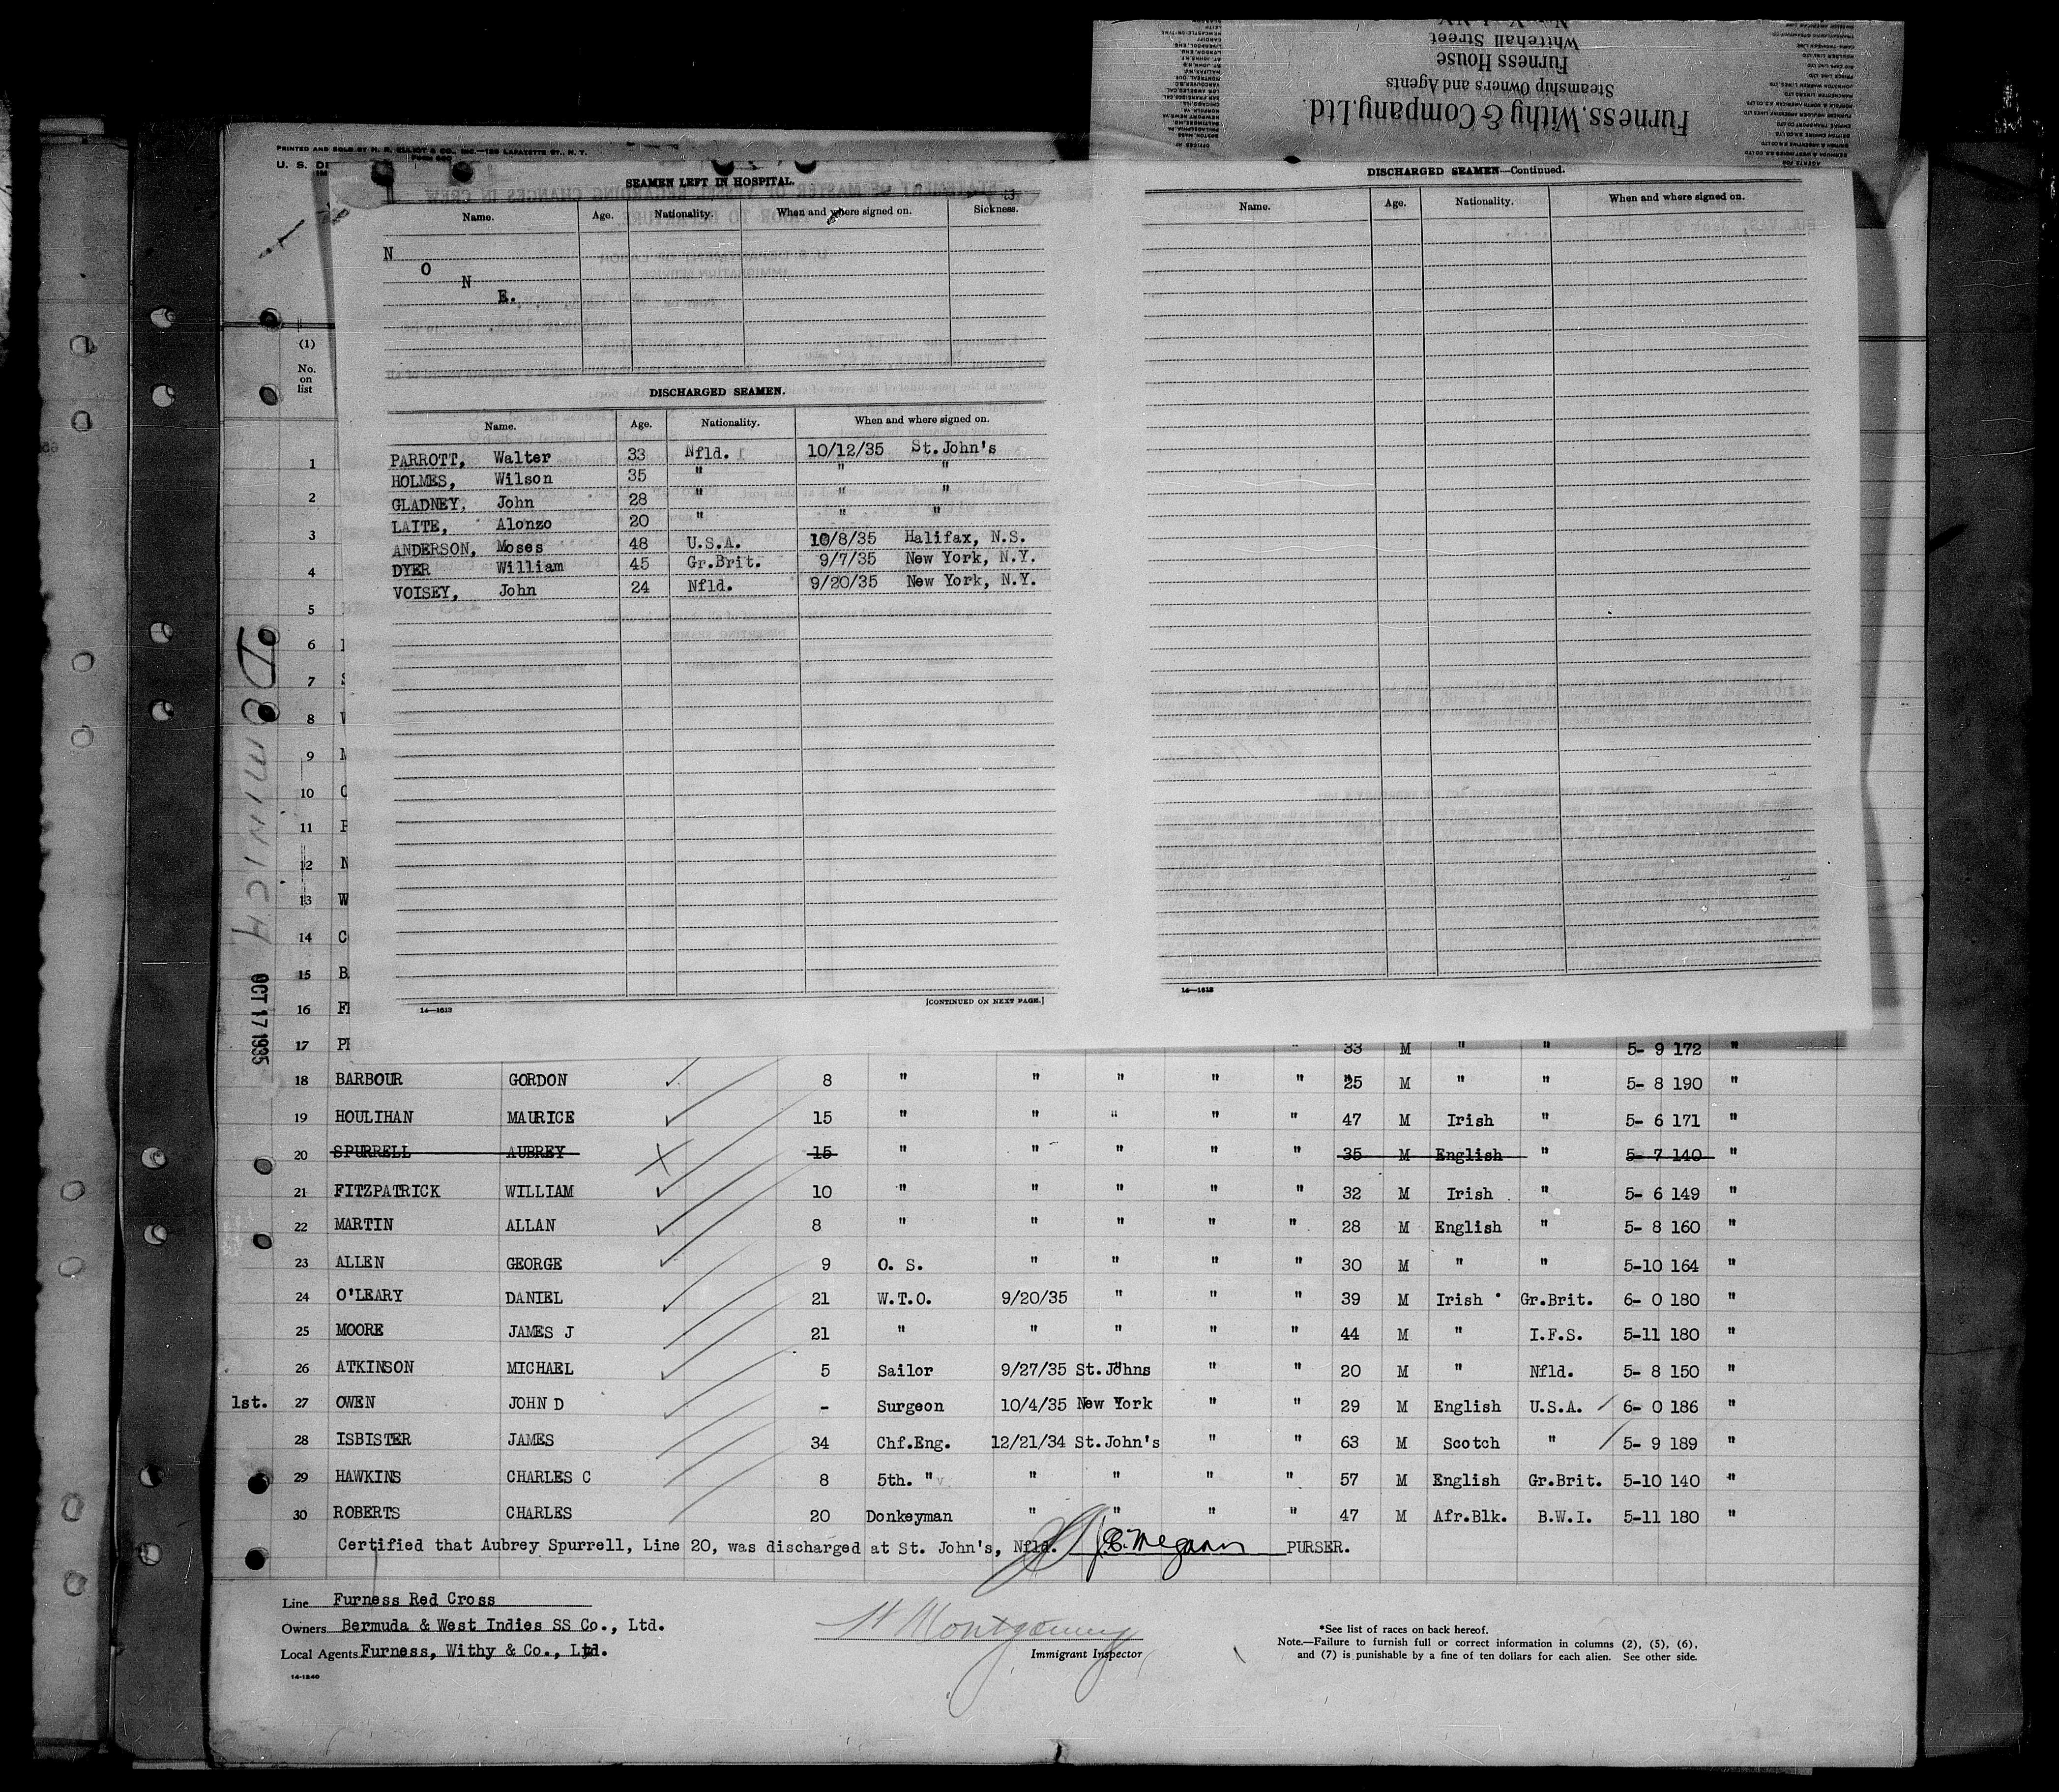 Furness, Withy & Company, Ltd.
Steamship Owners and Agents
Furness House
Whitehall Street
PRINTED AND SOLD BY
LAFAYETTE ST., N. Y.
U. S. DE
SEAMEN LEFT IN HOSPITAL.
Name. Age. Nationality. When and where signed on. Sickness.
N
O
N
E.
DISCHARGED SEAMEN.
Name. Age. Nationality. When and where signed on.
PARROTT, Walter 33 Nfld. 10/12/35 St.John's
HOLMES, Wilson 35 " " "
GLADNEY, John 28 " " "
LAITE, Alonzo 20 " " "
ANDERSON, Moses 48 U.S.A. 10/8/35 Halifax, N.S.
DYER William 45 Gr.Brit. 9/7/35 New York, N.Y.
VOISEY, John 24 Nfld. 9/20/35 New York, N.Y.
14—1613 [CONTINUED ON NEXT PAGE.]
DISCHARGED SEAMEN—Continued.
Name. Age. Nationality. When and where signed on.
14—1613
(1)
No.
on
list
1
2
3
4
5
6
7
8
9
10
11
12
13
14
15
16
DOMINICA
OCT 17 1935
17 33 M " " 5- 9 172 "
18 BARBOUR GORDON 8 " " " " " 25 M " " 5- 8 190 "
19 HOULIHAN MAURICE 15 " " " " " 47 M Irish " 5- 6 171 "
20 SPURRELL AUBREY 15 " " " " " 35 M English " 5- 7 140 "
21 FITZPATRICK WILLIAM 10 " " " " " 32 M Irish " 5- 6 149 "
22 MARTIN ALLAN 8 " " " " " 28 M English " 5- 8 160 "
23 ALLEN GEORGE 9 O. S. " " " " 30 M " " 5-10 164 "
24 O'LEARY DANIEL 21 W.T.O. 9/20/35 " " " 39 M Irish Gr.Brit. 6- 0 180 "
25 MOORE JAMES J 21 " " " " " 44 M " I.F.S. 5-11 180 "
26 ATKINSON MICHAEL 5 Sailor 9/27/35 St.Johns " " 20 M " Nfld. 5- 8 150 "
1st. 27 OWEN JOHN D - Surgeon 10/4/35 New York " " 29 M English U.S.A. 6- 0 186 "
28 ISBISTER JAMES 34 Chf.Eng. 12/21/34 St.John's " " 63 M Scotch " 5- 9 189 "
29 HAWKINS CHARLES C 8 5th. " " " " " 57 M English Gr.Brit. 5-10 140 "
30 ROBERTS CHARLES 20 Donkeyman " " " " 47 M Afr.Blk. B.W.I. 5-11 180 "
Certified that Aubrey Spurrell, Line 20, was discharged at St. John's, Nfld. PURSER.
Line Furness Red Cross
Owners Bermuda & West Indies SS Co., Ltd.
Local Agents Furness, Withy & Co., Ltd.
14-1240
H Montgomery
Immigrant Inspector
*See list of races on back hereof.
Note.—Failure to furnish full or correct information in columns (2), (5), (6),
and (7) is punishable by a fine of ten dollars for each alien. See other side.